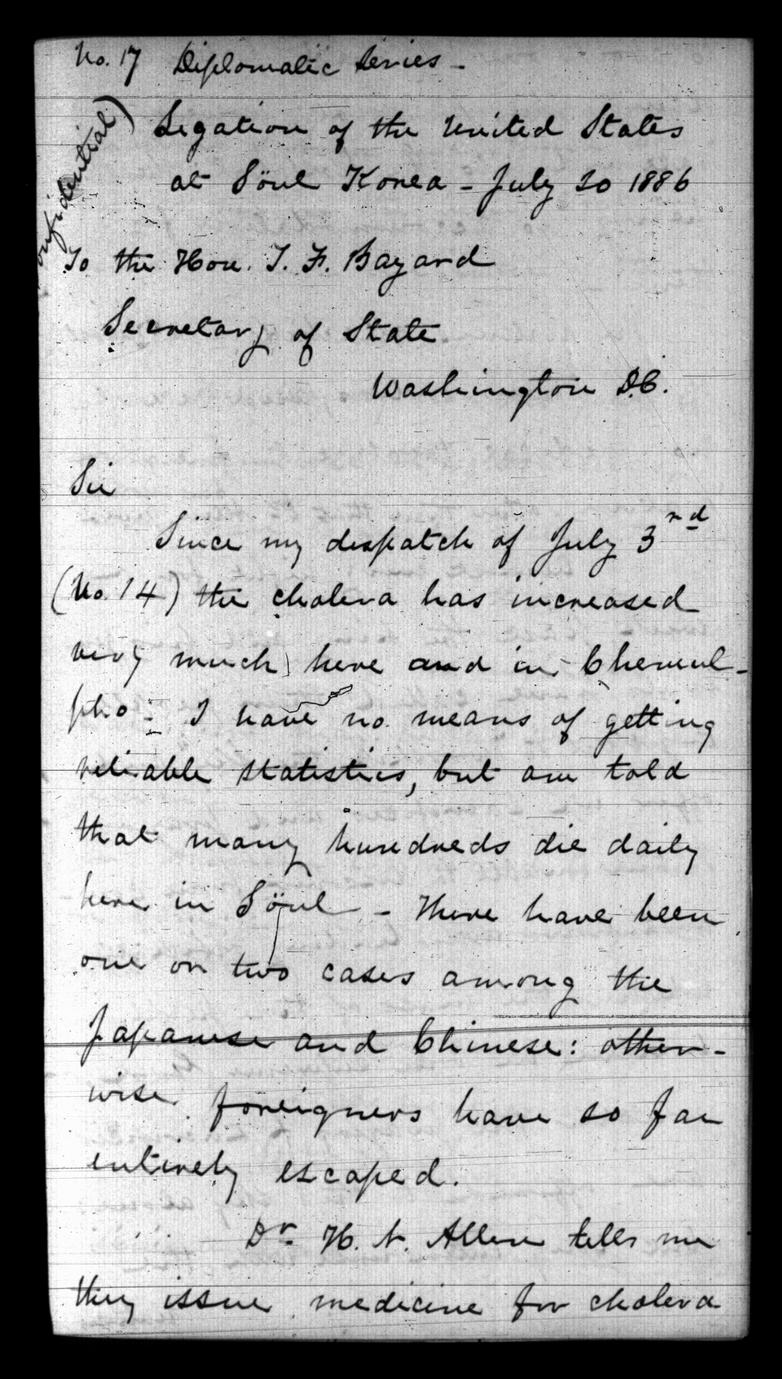 No. 17 Diplomatic Series -
(Confidential)
Legation of the United States
at Söul Korea - July 20 1886
To the Hon. T. F. Bayard
Secretary of State
Washington D.C.
Sir
Since my despatch of July 3rd
(No. 14) the cholera has increased
very much here and in Chemul-
pho - I have no means of getting
reliable statistics, but am told
that many hundreds die daily
here in Söul - There have been
one or two cases among the
Japanese and Chinese: other-
wise foreigners have so far
entirely escaped.
Dr. H. N. Allen tells me
they issue medicine for cholera